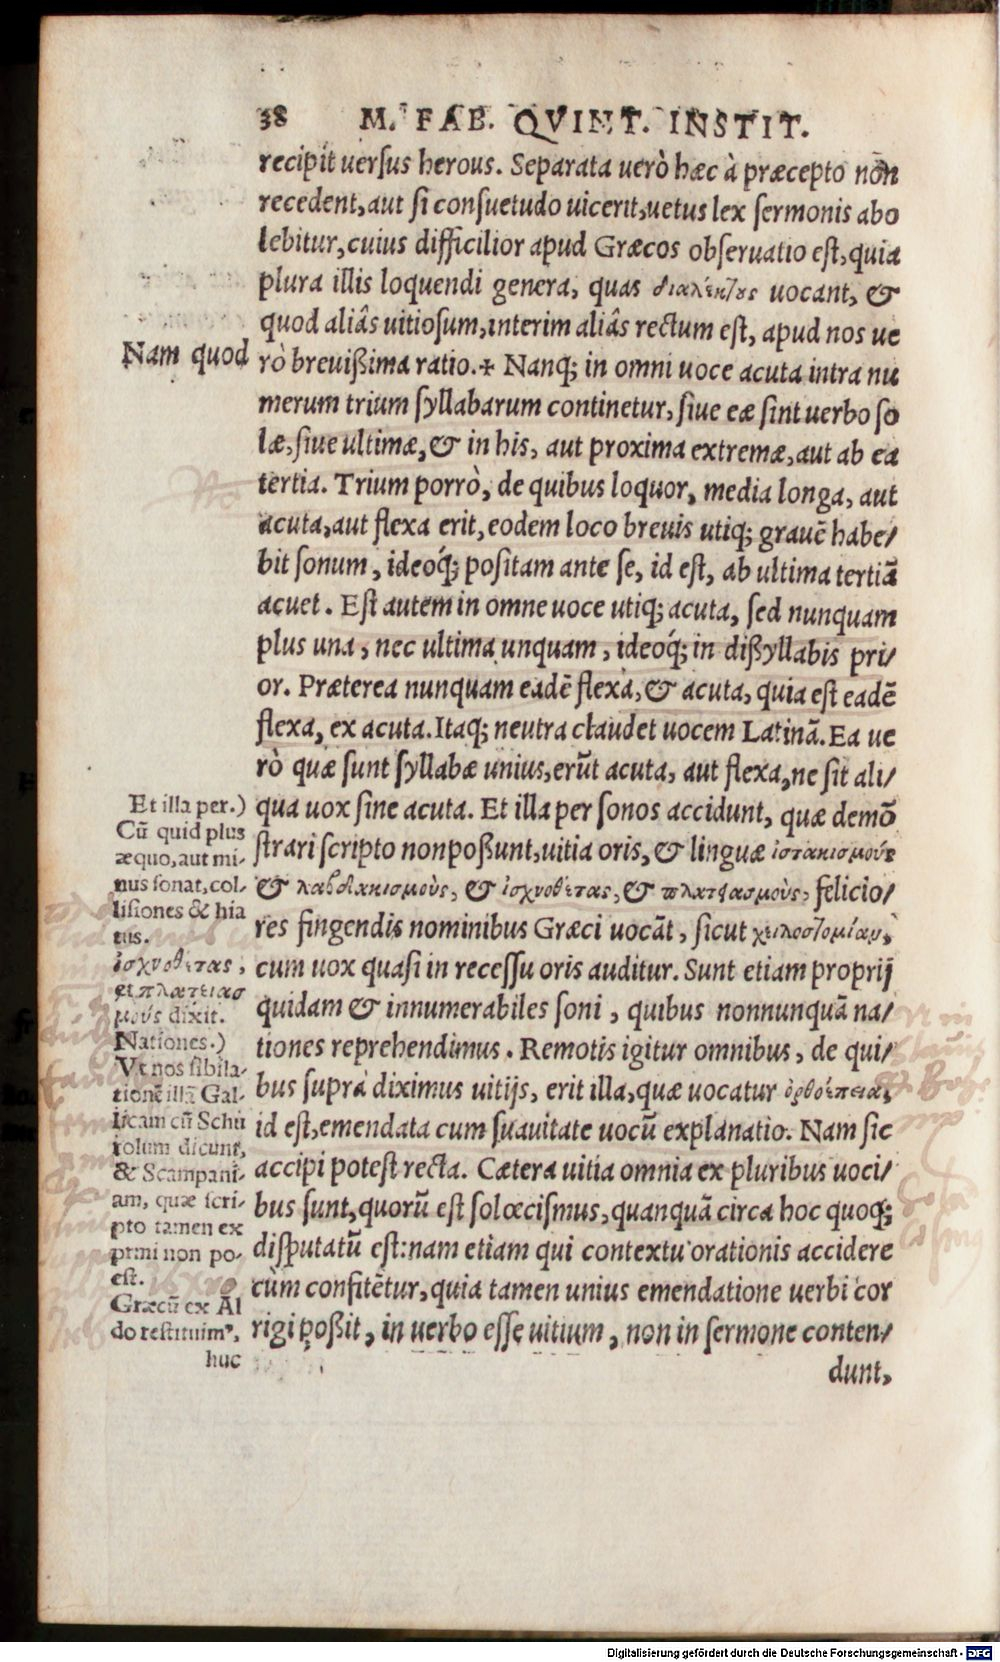 38 M. FAB. QVINT. INSTIT.
recipit uersus herous. Separata uerò hæc à præcepto non
recedent, aut si consuetudo uicerit, uetus lex sermonis abo
lebitur, cuius difficilior apud Græcos obseruatio est, quia
plura illis loquendi genera, quas διαλέκτους uocant, &
quod aliâs uitiosum, interim aliâs rectum est, apud nos ue
rò breuißima ratio.+ Nanq; in omni uoce acuta intra nu
merum trium syllabarum continetur, siue eæ sint uerbo so
læ, siue ultimæ, & in his, aut proxima extremæ, aut ab ea
tertia. Trium porrò, de quibus loquor, media longa, aut
acuta, aut flexa erit, eodem loco breuis utiq; grauē habe/
bit sonum, ideoq́; positam ante se, id est, ab ultima tertiā
acuet. Est autem in omne uoce utiq; acuta, sed nunquam
plus una, nec ultima unquam, ideoq́; in dißyllabis pri/
or. Præterea nunquam eadē flexa, & acuta, quia est eadē
flexa, ex acuta. Itaq; neutra claudet uocem Latinā. Ea ue
rò quæ sunt syllabæ unius, erūt acuta, aut flexa, ne sit ali/
qua uox sine acuta. Et illa per sonos accidunt, quæ demō
strari scripto non poßunt, uitia oris, & linguæ ἰστακισμοὺς
& λαβδακισμοὺς, & ἰσχνοθέτας, & πλατειασμοὺς, felicio/
res fingendis nominibus Græci uocāt, sicut χειλοστομίαν,
cum uox quasi in recessu oris auditur. Sunt etiam proprij
quidam & innumerabiles soni, quibus nonnunquā na/
tiones reprehendimus. Remotis igitur omnibus, de qui/
bus suprà diximus uitijs, erit illa, quæ uocatur ὀρθοέπεια,
id est, emendata cum suauitate uocū explanatio. Nam sic
accipi potest recta. Cætera uitia omnia ex pluribus uoci/
bus sunt, quorū est solœcismus, quanquā circa hoc quoq;
disputatū est: nam etiam qui contextu orationis accidere
cùm confitētur, quia tamen unius emendatione uerbi cor
rigi poßit, in uerbo esse uitium, non in sermone conten/
dunt,
Nam quod
Et illa per.)
Cū quid plus
æquo, aut mi-
nus sonat, col-
lisiones & hia
tus.
ἰσχνοθέτας,
et πλατειασ
μούς dixit.
Nationes.)
Vt nos sibila-
tionē illā Gal-
licam cū Schu
rolum dicunt,
& Scampani-
am, quæ scri-
pto tamen ex
primi non po-
est.
Græcū ex Al
do restituim⁹,
huc
Digitalisierung gefördert durch die Deutsche Forschungsgemeinschaft - DFG